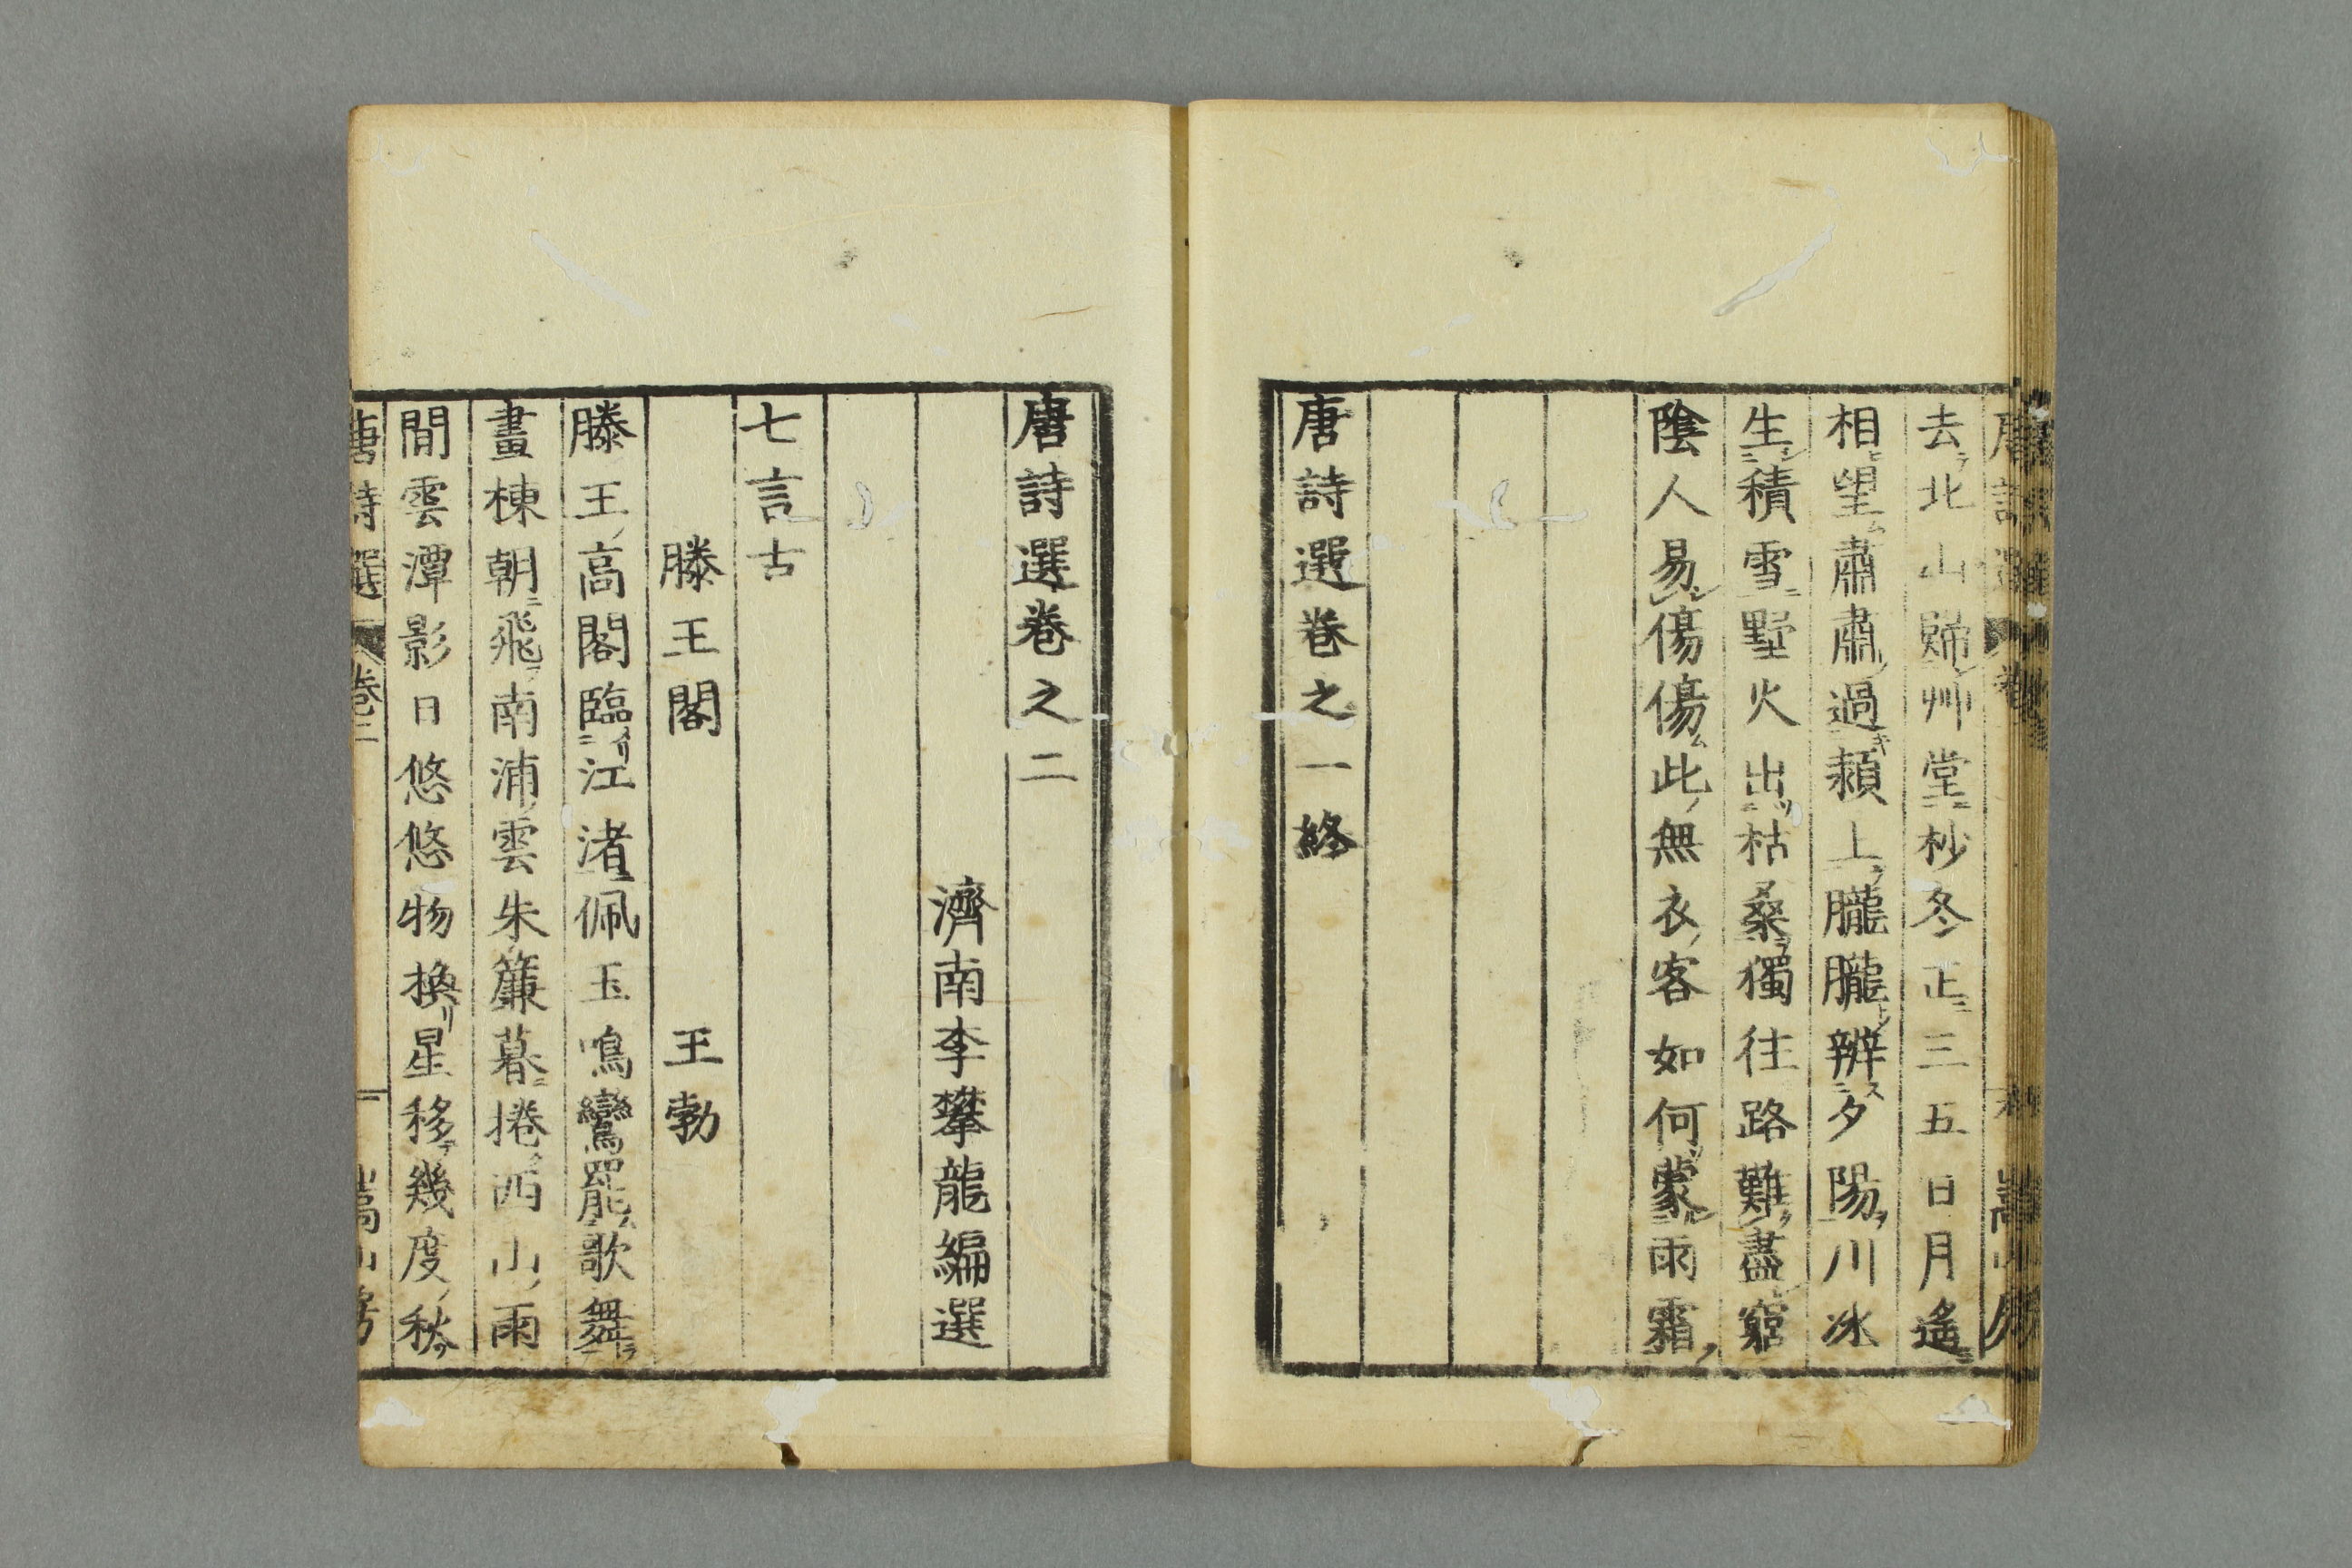 去北山歸艸堂杪冬正三五日月遙
相望肅肅過潁上朧朧辨夕陽川冰
生積雪墅火出枯桑獨往路難盡窮
陰人易傷傷此無衣客如何蒙雨霜
唐詩選卷之一終
唐詩選卷之二
濟南李攀龍編選
七言古
滕王閣 王勃
滕王高閣臨江渚佩玉鳴鸞罷歌舞
畫棟朝飛南浦雲朱簾暮捲西山雨
閒雲潭影日悠悠物換星移幾度秋
唐詩選 卷二 一 嵩山房